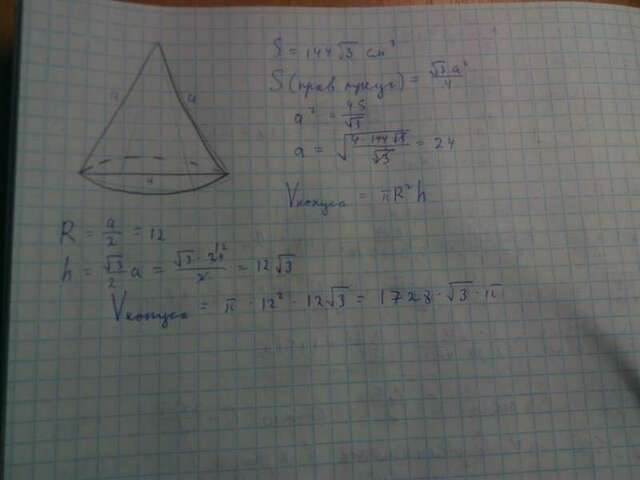 a a
a
S = 144√3 см²
S (прав треуг) = √3·a²/4
a² = 4S/√3
a = √(4·144√3/√3) = 24
Vконуса = πR²h
R = a/2 = 12
h = √3/2 a = √3·24¹²/2 = 12√3
Vконуса = π·12²·12√3 = 1728·√3·π